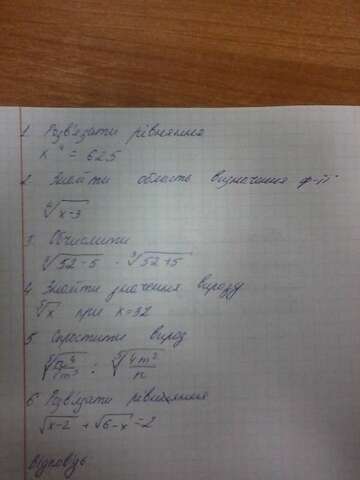 1 Розв'язати рівняння
x⁴ = 625
2 Знайти область визначення ф-ії
⁶√x-3
3 Обчислити
∛52-5 · ∛52+5
4 Знайти значення виразу
⁵√x при x=32
5 Спростити вираз
: ⁵√4m²/n
6 Розв'язати рівняння
√x-2 + √6-x = 2
відповідь